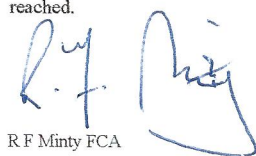 reached.
R.F. Minty
R F Minty FCA